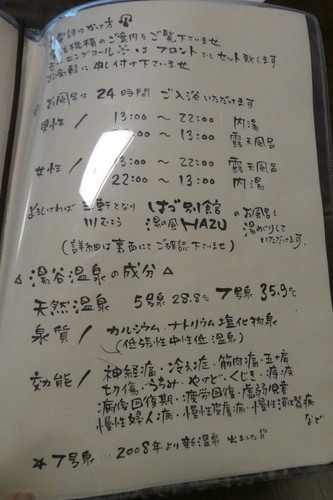 電話のかけ方
機種のご案内をご覧下さいませ
モーニングコール は フロントにてセット致します
お気軽に申し付け下さいませ
お風呂は 24時間 ご入浴いただけます
男性 / 13:00 〜 22:00 内湯
13:00 露天風呂
女性 / 13:00 〜 22:00 露天風呂
22:00 〜 13:00 内湯
よろしければ 三軒となり はづ別館 のお風呂も
川むこう 湯の風HAZU 湯めぐりして
いただけます.
(詳細は裏面にてご確認下さいませ)
△ 湯谷温泉の成分 △
天然温泉 5号泉 28.8℃ 7号泉 35.9℃
泉質 / カルシウム・ナトリウム塩化物泉
(低張性中性低温泉)
効能 / 神経症・冷え症・筋肉痛・五十肩
切傷・うちみ・やけど・くじき・痔疾
病後回復期・疲労回復・虚弱児童
慢性婦人病・慢性皮膚病・慢性消化器病
など
☆ 7号泉…2008年より新温泉 出ました!!